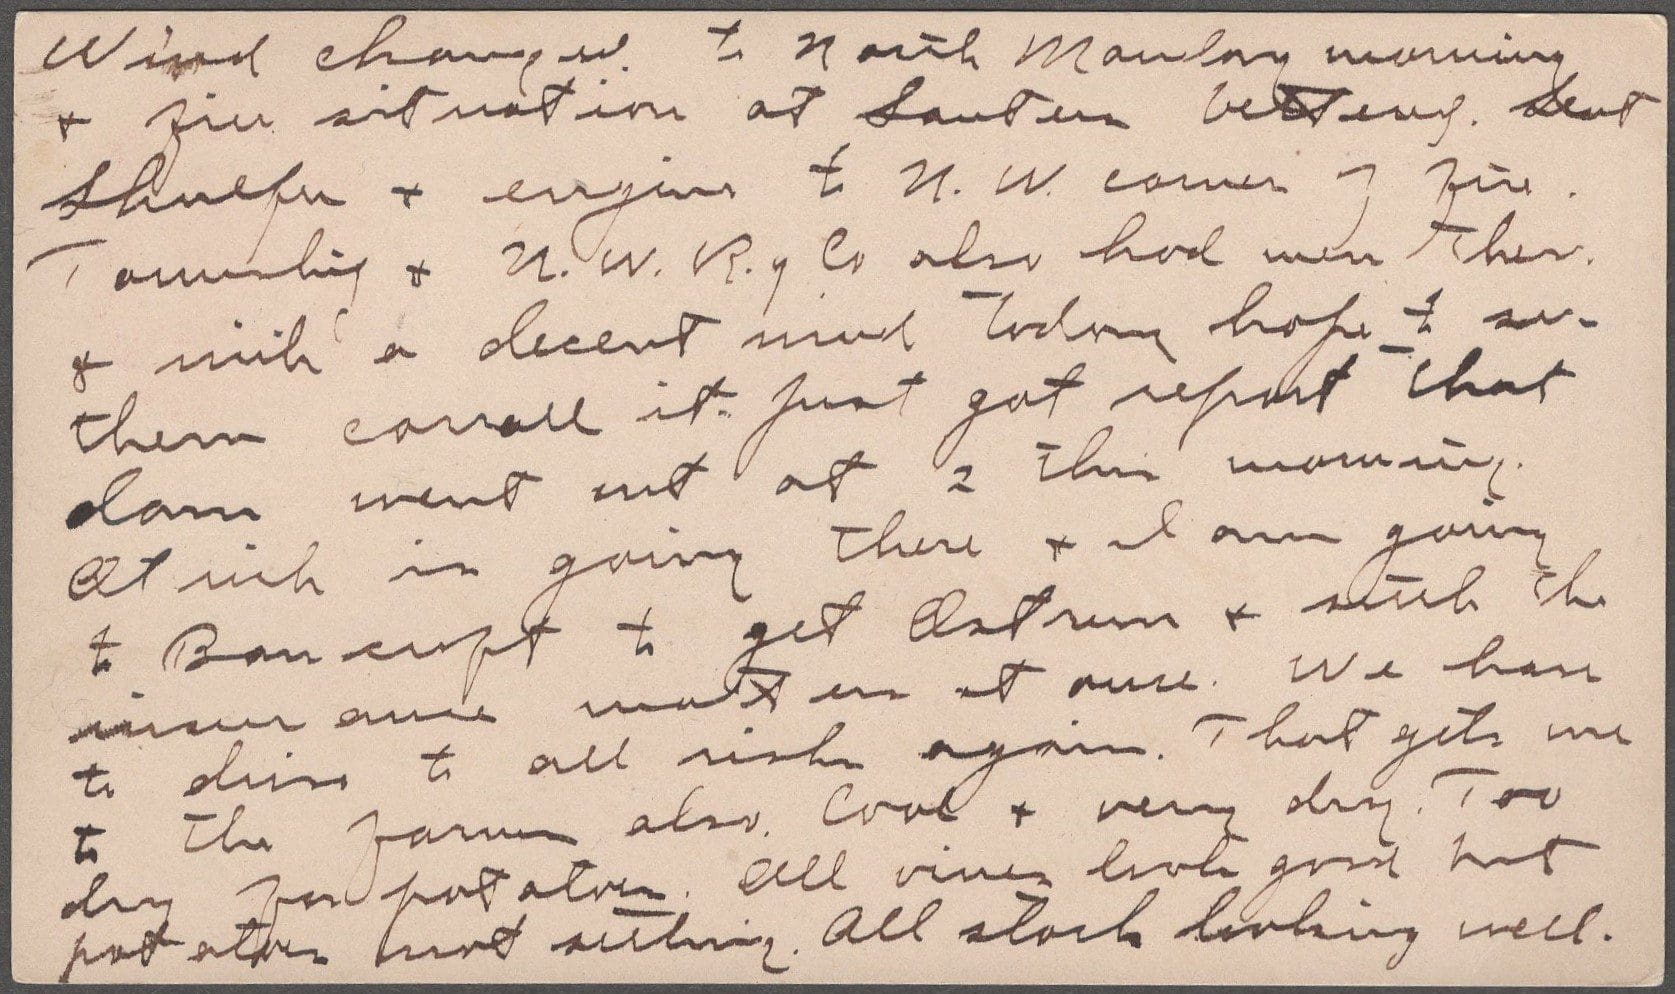 Wind changed to North Monday morning
& fire situation at Sauters better. Sent
Shaefer & engine to N. W. corner of fire.
Township & N. W. R.y Co also had men there.
& with a decent wind today hope to see
them corrall it. Just got report that
dam went out at 2 this morning.
is going there & I am going
to Bancroft to get Ostrum & settle the
insurance matter at once. We have
to drive to all risks again. That gets me
to the farm also. Cool & very dry. Too
dry for potatoes. All vines look good but
potatoes not setting. All stock looking well.